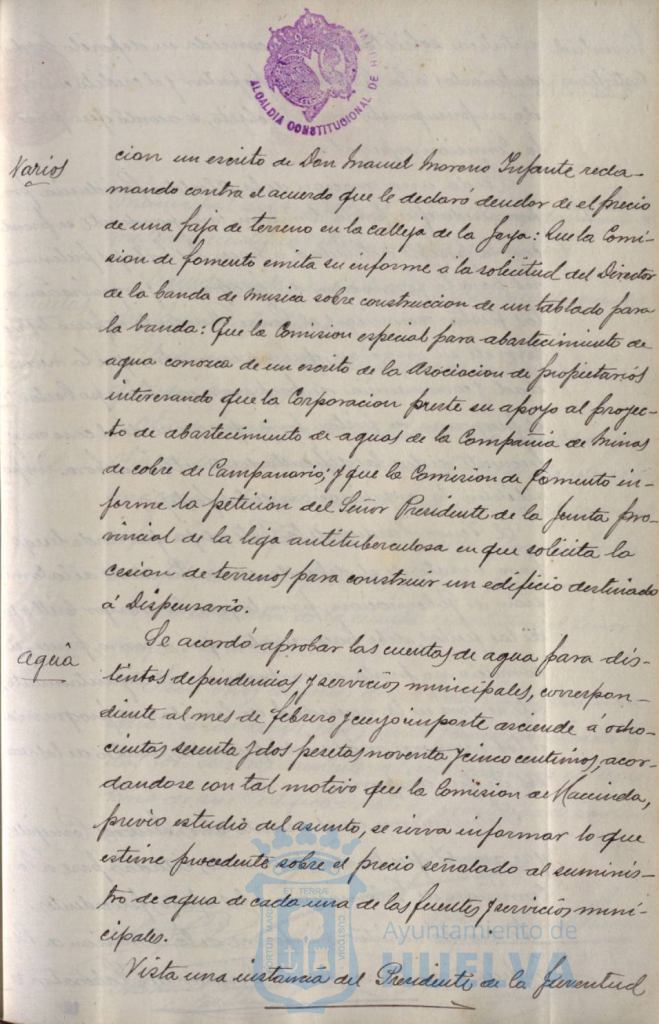 ALCALDIA CONSTITUCIONAL DE HUELVA
Varios
cion un escrito de Don Manuel Moreno Infante recla-
mando contra el acuerdo que le declaró deudor de el precio
de una faja de terreno en la calleja de la Joya: Que la Comi-
sion de fomento emita su informe á la solicitud del Director
de la banda de musica sobre construccion de un tablado para
la banda: Que la Comision especial para abastecimiento de
agua conozca de un escrito de la Asociacion de propietarios
interesando que la Corporacion preste su apoyo al proyec-
to de abastecimiento de aguas de la Compañia de Minas
de cobre de Campanario; y que la Comision de fomento in-
forme la peticion del Señor Presidente de la Junta pro-
vincial de la liga antituberculosa en que solicita la
cesion de terrenos para construir un edificio destinado
á Dispensario.
agua
Se acordó aprobar las cuentas de agua para dis-
tintas dependencias y servicios municipales, correspon-
diente al mes de febrero y cuyo importe asciende á ocho-
cientas sesenta y dos pesetas noventa y cinco centimos, acor-
dandose con tal motivo que la Comision de Hacienda,
previo estudio del asunto, se sirva informar lo que
estime procedente sobre el precio señalado al suminis-
tro de agua de cada una de las fuentes y servicios muni-
cipales.
Vista una instancia del Presidente de la Juventud
PORTUS MARIS ET TERRAE CUSTODIA
Ayuntamiento de
HUELVA